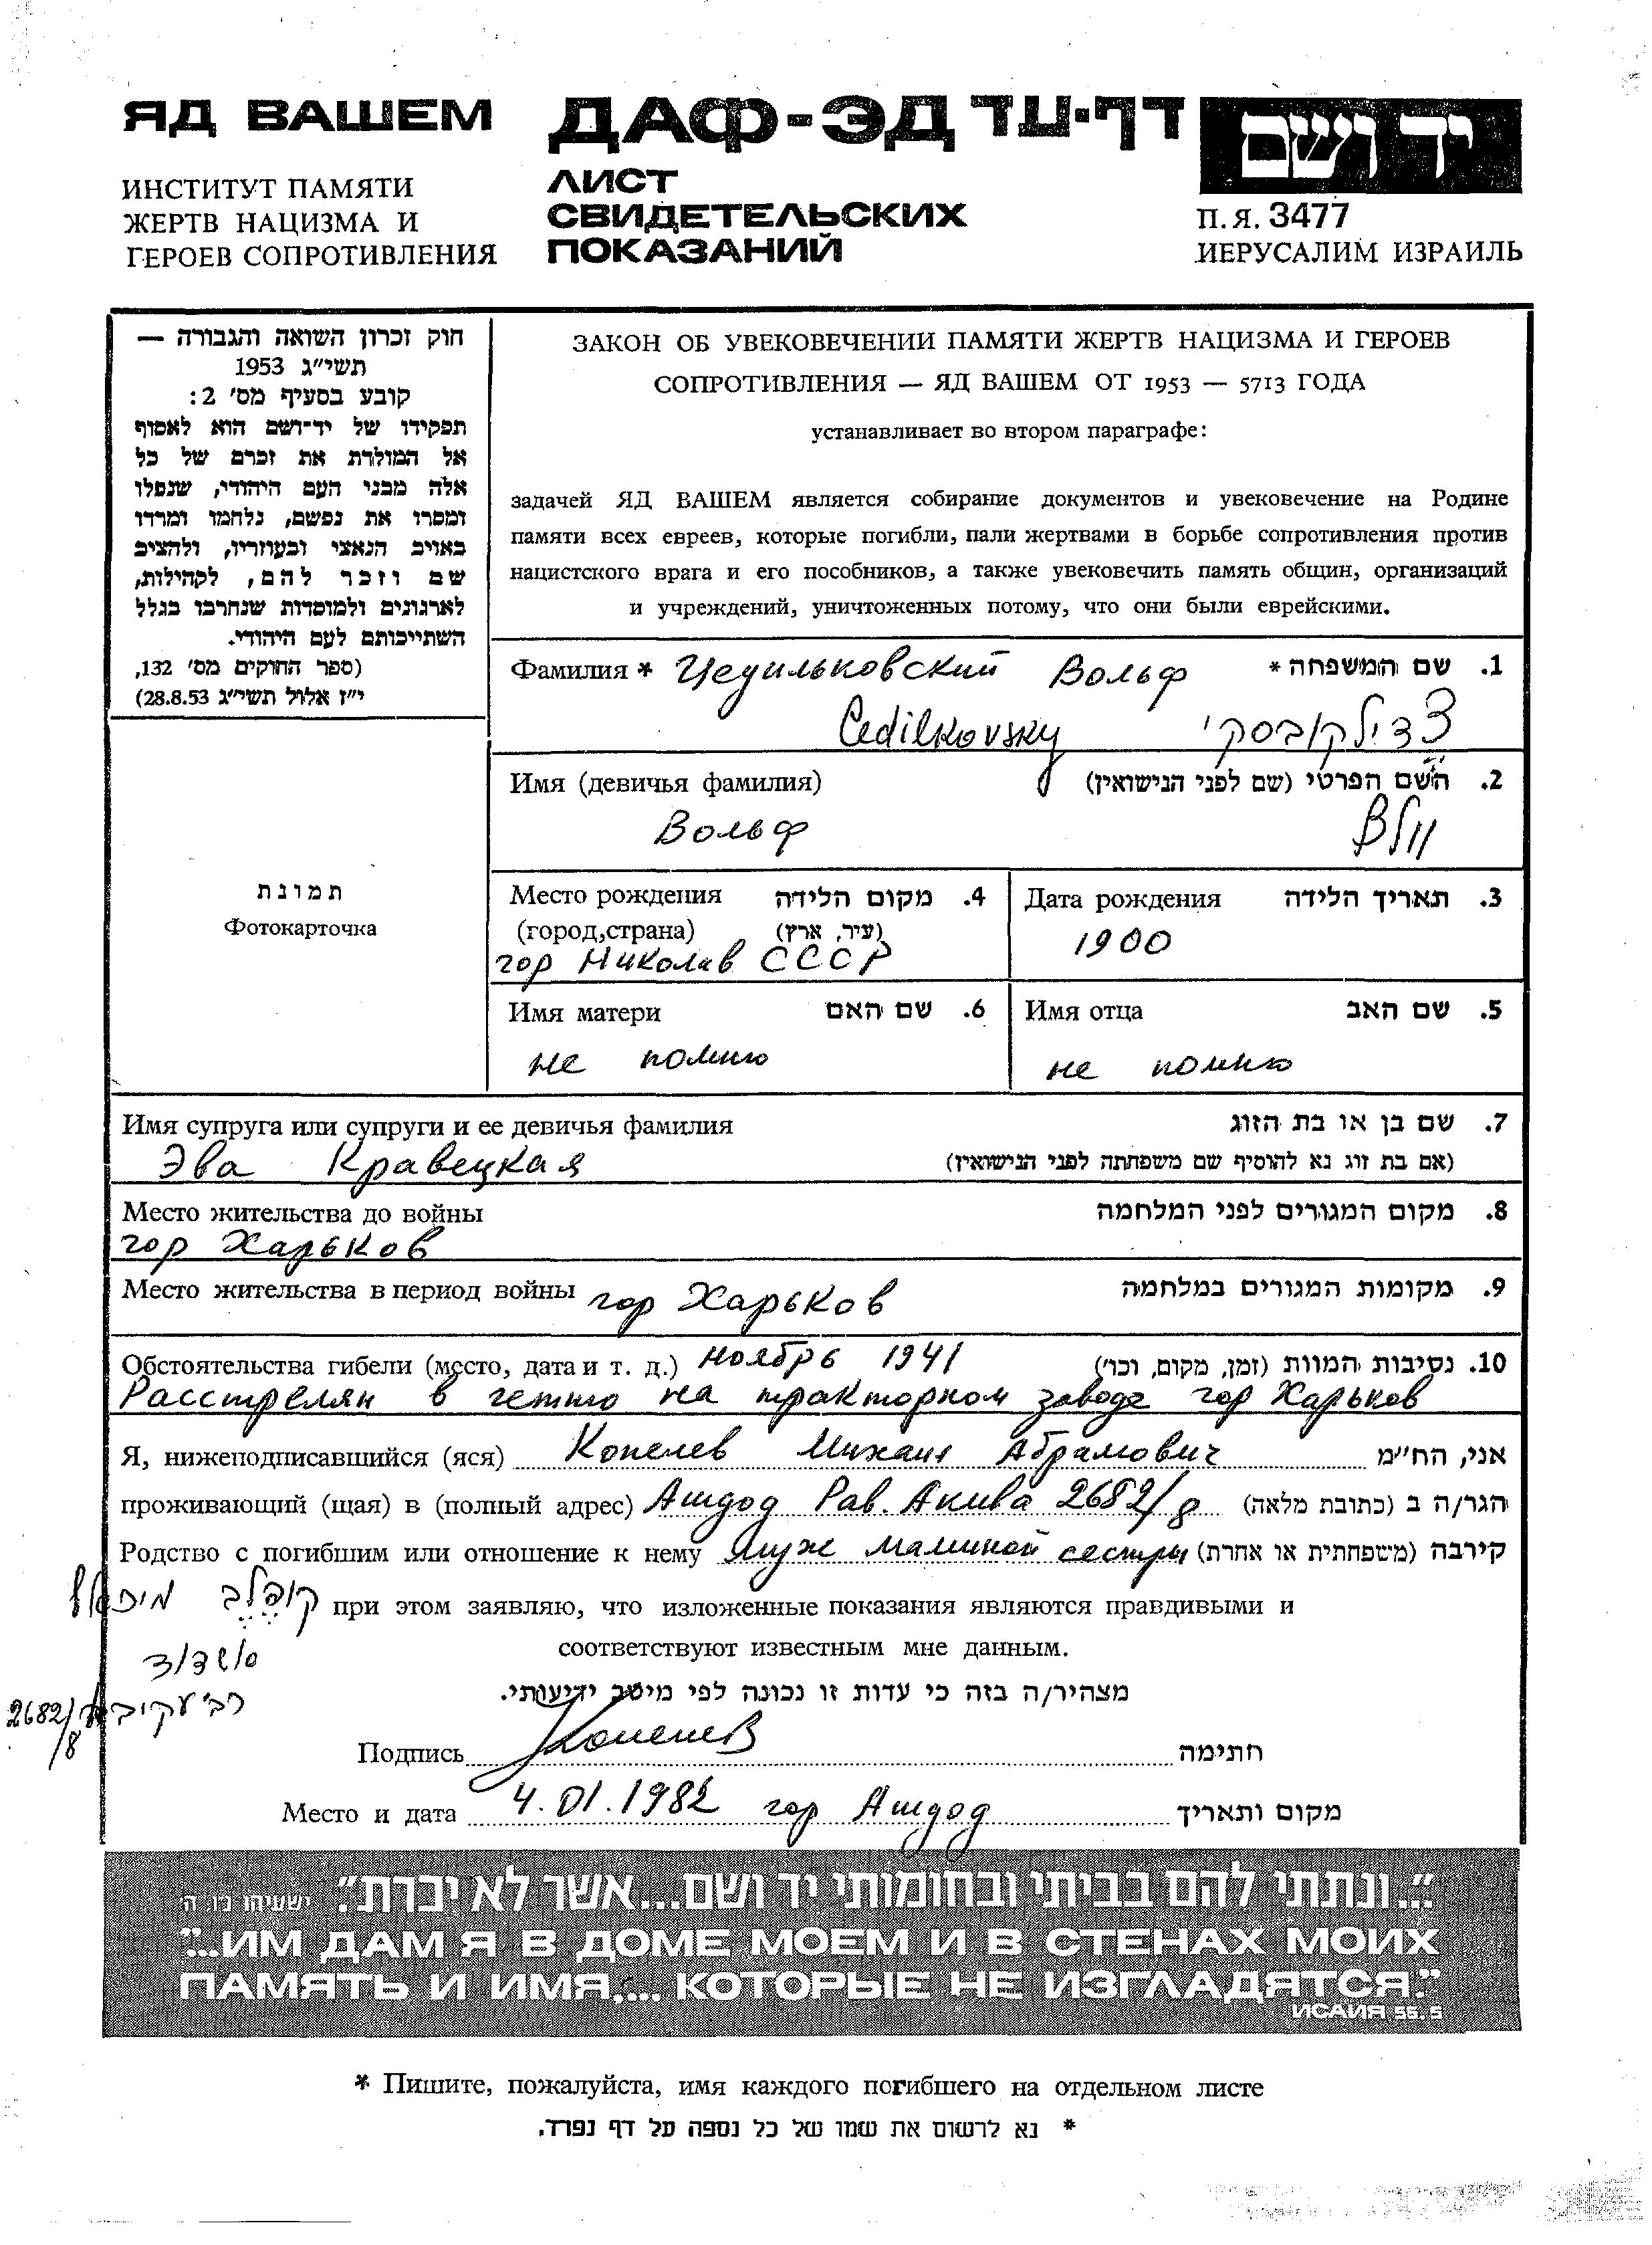 ЯД ВАШЕМ
ИНСТИТУТ ПАМЯТИ
ЖЕРТВ НАЦИЗМА И
ГЕРОЕВ СОПРОТИВЛЕНИЯ
ДАФ-ЭД דף-עד
ЛИСТ
СВИДЕТЕЛЬСКИХ
ПОКАЗАНИЙ
יד ושם
П.Я. 3477
ИЕРУСАЛИМ ИЗРАИЛЬ
חוק זכרון השואה והגבורה —
תשי״ג 1953
קובע בסעיף מס׳ 2:
תפקידו של יד־ושם הוא לאסוף
אל המולדת את זכרם של כל
אלה מבני העם היהודי, שנפלו
ומסרו את נפשם, נלחמו ומרדו
באויב הנאצי ובעוזריו, ולהציב
שם וזכר להם, לקהילות,
לארגונים ולמוסדות שנחרבו בגלל
השתייכותם לעם היהודי.
(ספר החוקים מס׳ 132,
י״ז אלול תשי״ג 28.8.53)
תמונת
Фотокарточка
ЗАКОН ОБ УВЕКОВЕЧЕНИИ ПАМЯТИ ЖЕРТВ НАЦИЗМА И ГЕРОЕВ
СОПРОТИВЛЕНИЯ — ЯД ВАШЕМ ОТ 1953 — 5713 ГОДА
устанавливает во втором параграфе:
задачей ЯД ВАШЕМ является собирание документов и увековечение на Родине
памяти всех евреев, которые погибли, пали жертвами в борьбе сопротивления против
нацистского врага и его пособников, а также увековечить память общин, организаций
и учреждений, уничтоженных потому, что они были еврейскими.
Фамилия * Цедильковский Вольф 1. שם המשפחה *
Cedilkovsky צדילקובסקי
Имя (девичья фамилия) 2. השם הפרטי (שם לפני הנישואין)
Вольф וולב
Место рождения 4. מקום הלידה
(город,страна) (עיר, ארץ)
гор Николав СССР
Дата рождения 3. תאריך הלידה
1900
Имя матери 6. שם האם
не помню
Имя отца 5. שם האב
не помню
Имя супруга или супруги и ее девичья фамилия 7. שם בן או בת הזוג
Эва Кравецкая (אם בת זוג נא להוסיף שם משפחתה לפני הנישואין)
Место жительства до войны 8. מקום המגורים לפני המלחמה
гор Харьков
Место жительства в период войны гор Харьков 9. מקומות המגורים במלחמה
Обстоятельства гибели (место, дата и т. д.) ноябрь 1941 10. נסיבות המוות (זמן, מקום, וכו׳)
Расстрелян в гетто на тракторном заводе гор Харьков
Я, нижеподписавшийся (яся) Копелев Михаил Абрамович אני, הח״מ
проживающий (щая) в (полный адрес) Ашдод Рав. Акива 2682/8 הגר/ה ב (כתובת מלאה)
Родство с погибшим или отношение к нему Муж маминой сестры קירבה (משפחתית או אחרת)
קופלב מיכאל при этом заявляю, что изложенные показания являются правдивыми и
соответствуют известным мне данным.
אשדוד
רב׳ עקיבא 2682/8
מצהיר/ה בזה כי עדות זו נכונה לפי מיטב ידיעותי.
Подпись Копелев חתימה
Место и дата 4.01.1982 гор Ашдод מקום ותאריך
״...ונתתי להם בביתי ובחומותי יד ושם...אשר לא יכרת״. ישעיהו נ״ו ה׳
"...ИМ ДАМ Я В ДОМЕ МОЕМ И В СТЕНАХ МОИХ
ПАМЯТЬ И ИМЯ,... КОТОРЫЕ НЕ ИЗГЛАДЯТСЯ."
ИСАИЯ, 56, 5
* Пишите, пожалуйста, имя каждого погибшего на отдельном листе
* נא לרשום את שמו של כל נספה על דף נפרד.